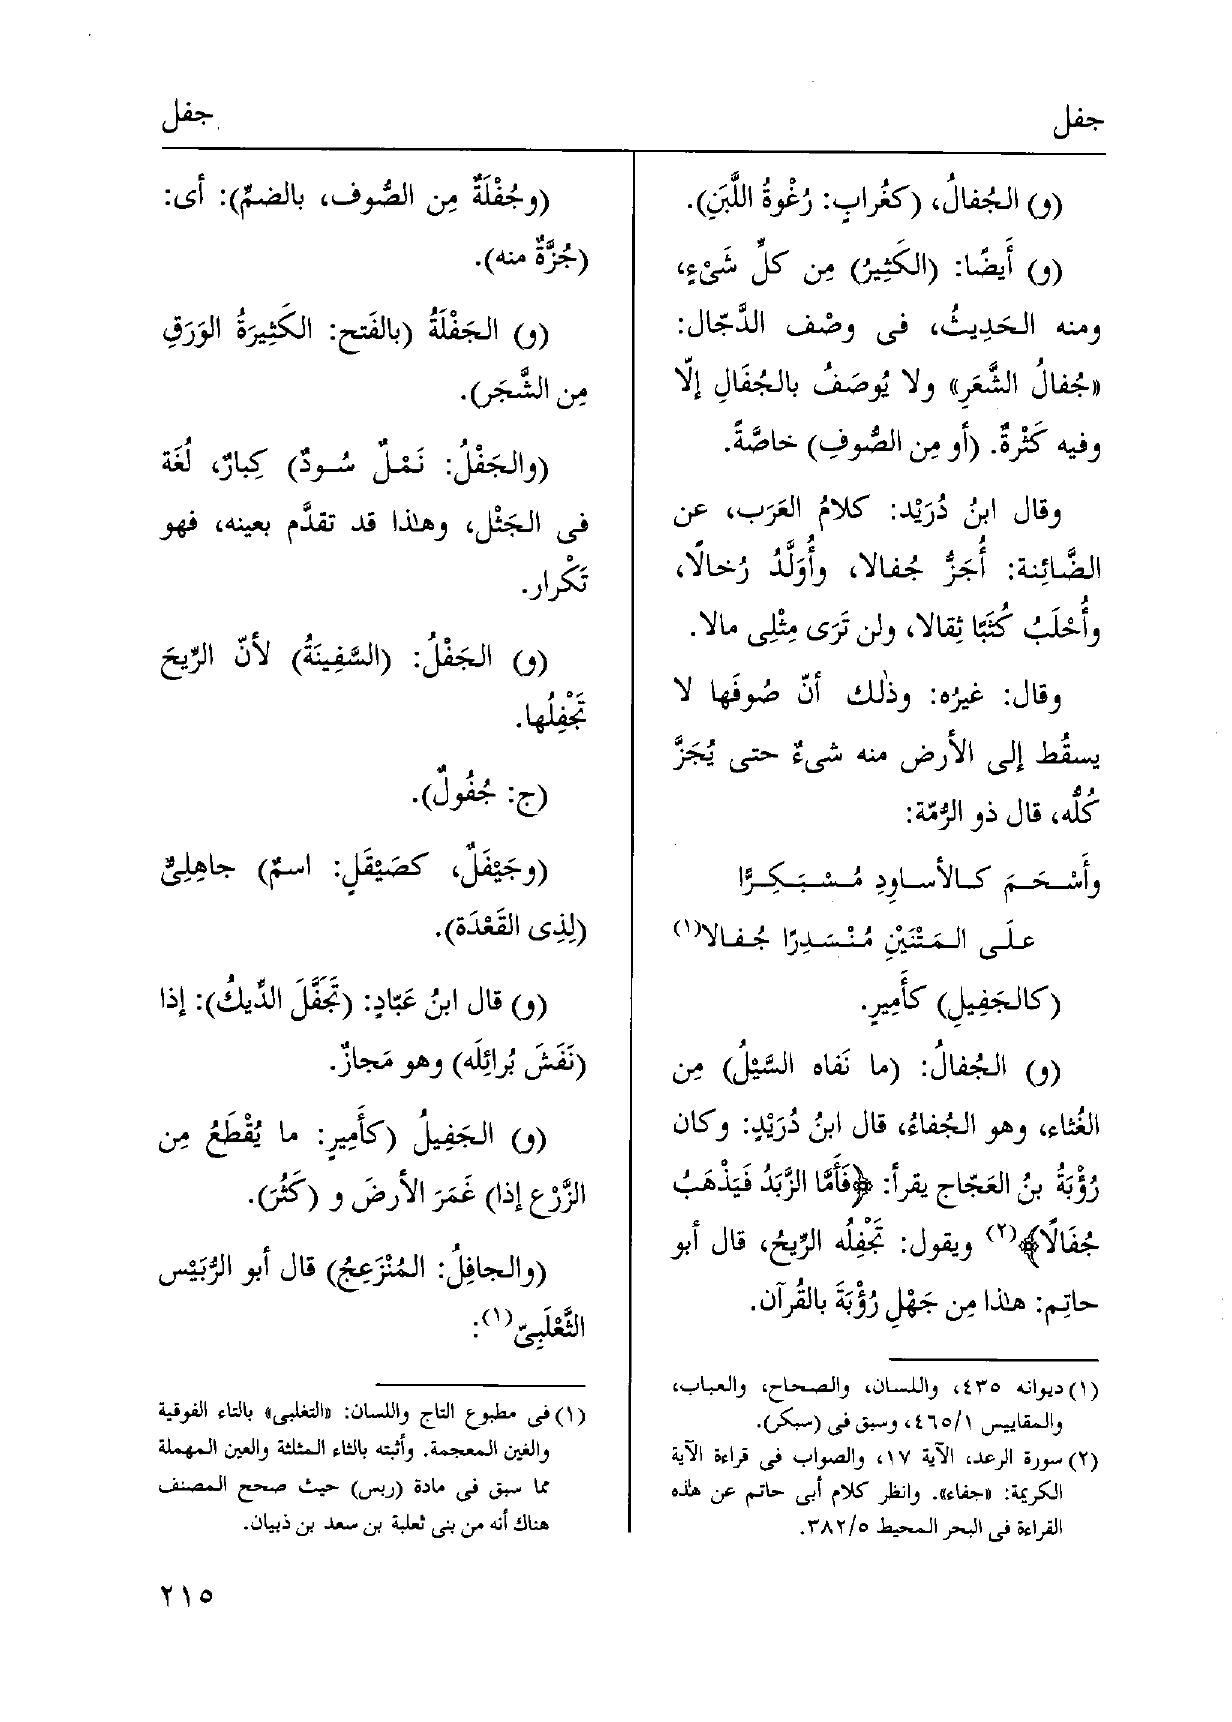 جفل
جفل
(و) الجُفالُ، (كغُرابٍ: رُغْوةُ اللَّبَنِ).
(و) أَيضًا: (الكَثِيرُ) مِن كلِّ شَىْءٍ،
ومنه الحَدِيثُ، فى وصْف الدَّجّال:
«جُفالُ الشَّعَرِ» ولا يُوصَفُ بالجُفَالِ إلّا
وفيه كَثْرةٌ. (أو مِن الصُّوفِ) خاصَّةً.
وقال ابنُ دُرَيْد: كلامُ العَرَب، عن
الضَّائِنة: أُجَزُّ جُفالا، وأُوَلَّدُ رُخالًا،
وأُحْلَبُ كُثَبًا ثِقالا، ولن تَرَى مِثْلِى مالا.
وقال: غيرُه: وذٰلك أنّ صُوفَها لا
يسقُط إلى الأرض منه شىءٌ حتى يُجَزَّ
كُلُّه، قال ذو الرُّمّة:
وأَسْحَمَ كالأساوِدِ مُسْبَكِرًّا
على المَتْنَيْنِ مُنْسَدِرًا جُفالا(١)
(كالجَفِيلِ) كأَمِيرٍ.
(و) الجُفالُ: (ما نَفاه السَّيْلُ) مِن
الغُثاء، وهو الجُفاءُ، قال ابنُ دُرَيْدٍ: وكان
رُؤْبَةُ بنُ العَجّاج يقرأ: ﴿فَأَمَّا الزَّبَدُ فَيَذْهَبُ
جُفَالًا﴾(٢) ويقول: تَجْفِلُه الرِّيحُ، قال أبو
حاتِم: هٰذا مِن جَهْلِ رُؤْبَةَ بالقُرآن.
(١) ديوانه ٤٣٥، واللسان، والصحاح، والعباب،
والمقاييس ٤٦٥/١، وسبق فى (سبكر).
(٢) سورة الرعد، الآية ١٧، والصواب فى قراءة الآية
الكريمة: «جفاء». وانظر كلام أبى حاتم عن هذه
القراءة فى البحر المحيط ٣٨٢/٥.
(وجُفْلَةٌ مِن الصُّوف، بالضمِّ): أى:
(جُزَّةٌ منه).
(و) الجَفْلَةُ (بالفَتح: الكَثِيرَةُ الوَرَقِ
مِن الشَّجَر).
(والجَفْلُ: نَمْلٌ سُودٌ) كِبارٌ، لُغَة
فى الجَثْل، وهٰذا قد تقدَّم بعينه، فهو
تَكْرار.
(و) الجَفْلُ: (السَّفِينَةُ) لأنّ الرِّيحَ
تَجْفِلُها.
(ج: جُفُولٌ).
(وجَيْفَلٌ، كصَيْقَلٍ: اسمٌ) جاهِلِىٌّ
(لِذِى القَعْدَة).
(و) قال ابنُ عَبّادٍ: (تَجَفَّلَ الدِّيكُ): إذا
(نَفَشَ بُرائِلَه) وهو مَجازٌ.
(و) الجَفِيلُ (كأَمِيرٍ: ما يُقْطَعُ مِن
الزَّرْع إذا) غَمَرَ الأرضَ و (كَثُرَ).
(والجافِلُ: المُنْزَعِجُ) قال أبو الرُّبَيْس
الثَّعْلَبِىّ(١):
(١) فى مطبوع التاج واللسان: «التغلبى» بالتاء الفوقية
والغين المعجمة. وأثبته بالثاء المثلثة والعين المهملة
مما سبق فى مادة (ربس) حيث صحح المصنف
هناك أنه من بنى ثعلبة بن سعد بن ذبيان.
٢١٥